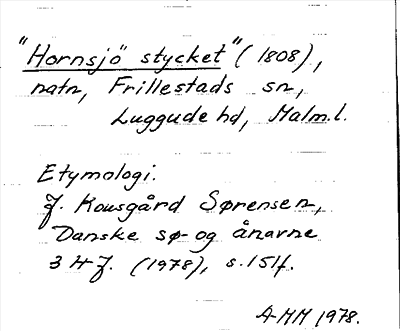 "Hornsjö stycket" (1808),
natn, Frillestads sn,
Luggude hd, Malm.l.
Etymologi.
J. Kousgård Sørensen,
Danske sø- og ånavne
3 H-J. (1978), s. 151f.
A-MM 1978.